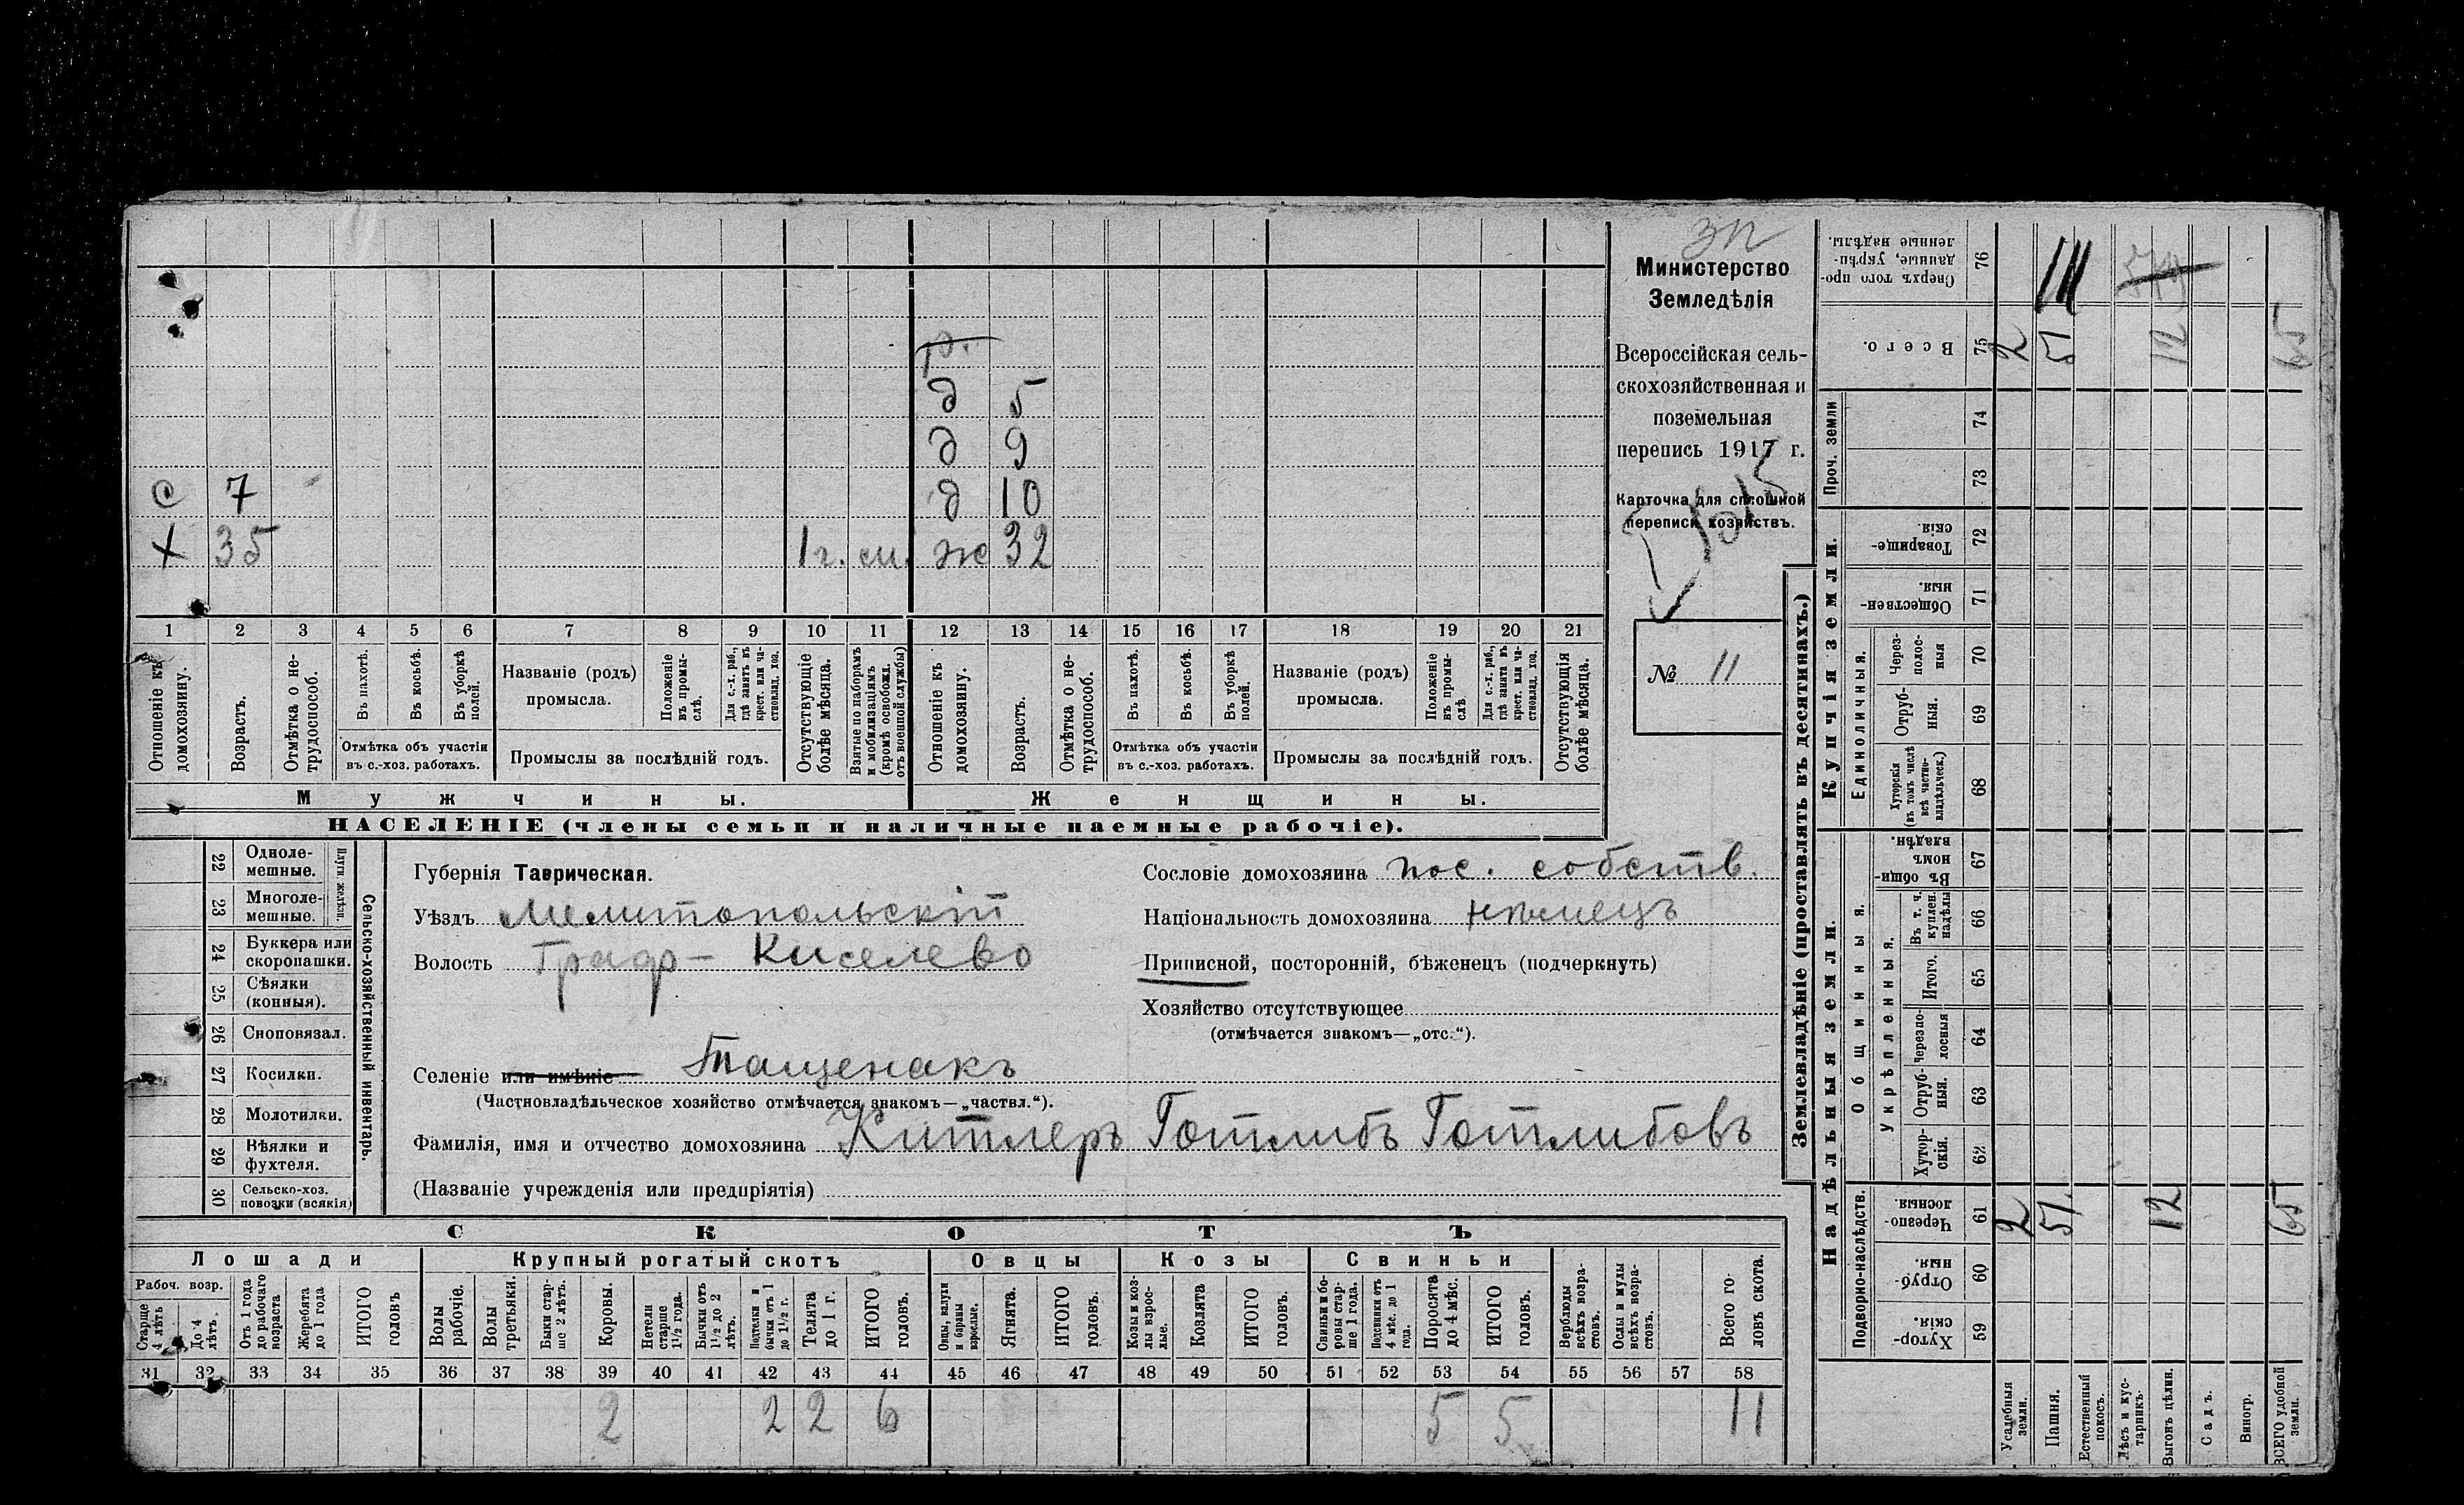 зп
Министерство
Земледѣлія
Всероссійская сель-
скохозяйственная и
поземельная
перепись 1917 г.
Карточка для сплошной
переписи хозяйствъ.
№ 11
д 5
д 9
с 7 д 10
х 35 1г. м. ж 32
1 2 3 4 5 6 7 8 9 10 11 12 13 14 15 16 17 18 19 20 21
Отношеніе къ домохозяину.
Возрастъ.
Отмѣтка о не-трудоспособ.
Въ пахотѣ.
Въ косьбѣ.
Въ уборкѣ полей.
Отмѣтка объ участіи
въ с.-хоз. работахъ.
Названіе (родъ)
промысла.
Положеніе въ промы-слѣ.
Для с.-х. раб., гдѣ занятъ въ крест. или ча-стновлад. хоз.
Промыслы за послѣдній годъ.
Отсутствующіе болѣе мѣсяца.
Взятые по наборамъ и мобилизаціямъ (кромѣ освобожд. отъ военной службы)
Отношеніе къ домохозяину.
Возрастъ.
Отмѣтка о не-трудоспособ.
Въ пахотѣ.
Въ косьбѣ.
Въ уборкѣ полей.
Отмѣтка объ участіи
въ с.-хоз. работахъ.
Названіе (родъ)
промысла.
Положеніе въ промы-слѣ
Для с.-х. раб., гдѣ занята въ крест. или ча-стновлад. хоз.
Промыслы за послѣдній годъ.
Отсутствующія болѣе мѣсяца.
Мужчины. Женщины.
НАСЕЛЕНІЕ (члены семьи и наличные наемные рабочіе).
22 Одноле-мешные.
23 Многоле-мешные.
Плуги желѣзн.
24 Буккера или скоропашки.
25 Сѣялки (конныя).
26 Сноповязал.
27 Косилки.
28 Молотилки.
29 Вѣялки и фухтеля.
30 Сельско-хоз. повозки (всякія)
Сельско-хозяйственный инвентарь.
Губернія Таврическая.
Уѣздъ Мелитопольскій
Волость Граф-Киселево
Селеніе или имѣніе Тащенакъ
(Частновладѣльческое хозяйство отмѣчается знакомъ—„частвл.“).
Фамилія, имя и отчество домохозяина Китлеръ Готлибъ Готлибовъ
(Названіе учрежденія или предпріятія)
Сословіе домохозяина пос. собств.
Національность домохозяина нѣмецъ
Приписной, посторонній, бѣженецъ (подчеркнуть)
Хозяйство отсутствующее
(отмѣчается знакомъ—„отс.“).
СКОТЪ
Лошади Крупный рогатый скотъ Овцы Козы Свиньи
Рабоч. возр.
Старше 4 лѣтъ
До 4 лѣтъ.
Отъ 1 года до рабочаго возраста
Жеребята до 1 года
ИТОГО головъ
Волы рабочіе.
Волы третьяки.
Быки стар-ше 2 лѣтъ.
Коровы.
Нетели старше 1½ года.
Бычки отъ 1½ до 2 лѣтъ.
Подтелки и бычки отъ 1 до 1½ г.
Телята до 1 г.
ИТОГО головъ.
Овцы, валухи и бараны взрослые.
Ягнята.
ИТОГО головъ.
Козы и коз-лы взрос-лые.
Козлята
ИТОГО головъ.
Свиньи и бо-ровы стар-ше 1 года.
Подсвинки отъ 4 мѣс. до 1 года.
Поросята до 4 мѣс.
ИТОГО головъ.
Верблюды всѣхъ возра-стовъ.
Ослы и мулы всѣхъ возра-стовъ.
Всего го-ловъ скота.
31 32 33 34 35 36 37 38 39 40 41 42 43 44 45 46 47 48 49 50 51 52 53 54 55 56 57 58
2 2 2 6 5 5 11
Землевладѣніе (проставлять въ десятинахъ.)
Надѣльныя земли. Купчія земли. Проч. земли
Подворно-наслѣдств.
Общинныя.
Укрѣпленныя.
Единоличныя.
Хутор-скія. 59
Отруб-ныя. 60
Черезпо-лосныя. 61
Хутор-скія. 62
Отруб-ныя. 63
Черезпо-лосныя 64
Итого. 65
Въ т. ч. куплен. надѣлы 66
Въ общи-номъ владѣн. 67
Хуторскія (въ томъ числѣ всѣ частно-владѣльческ.) 68
Отруб-ныя. 69
Через-полос-ныя 70
Обществен-ныя. 71
Товарище-скія. 72
73
74
Всего. 75
Сверхъ того про-данные, укрѣп-ленные надѣлы. 76
2 51 12 65
2 51 12 65
Усадебныя земли.
Пашня.
Естественный покосъ.
Лѣсъ и кус-тарникъ.
Выгонъ цѣлин.
Садъ.
Виногр.
ВСЕГО удобной земли.